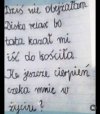 Dziś nie obejrzałam
Disko relax bo
tata kazał mi
iść do kościoła
Ile jeszcze cierpień
czeka mnie w
życiu?